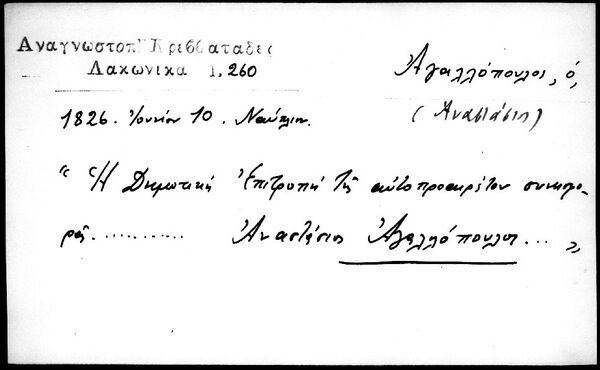 Αναγνωστοπ. Κρεββαταδες
Λακωνικα 1, 260
Ἀγαλλόπουλος, ὁ,
(Ἀναστάσιος)
1826. Ἰουνίου 10. Ναύπλιον.
“ Ἡ Δημοτικὴ Ἐπιτροπὴ τῆς αὐτοπροαιρέτου συνεισφο-
ρᾶς............. Ἀναστάσιος Ἀγαλλόπουλος... „